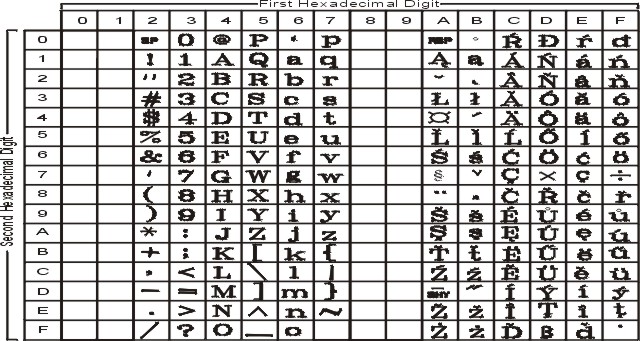 First Hexadecimal Digit
0 1 2 3 4 5 6 7 8 9 A B C D E F
Second Hexadecimal Digit
0 SP 0 @ P ` p NBSP ° Ŕ Đ ŕ đ
1 ! 1 A Q a q Ą ą Á Ń á ń
2 " 2 B R b r ˘ ˛ Â Ň â ň
3 # 3 C S c s Ł ł Ă Ó ă ó
4 $ 4 D T d t ¤ ´ Ä Ô ä ô
5 % 5 E U e u Ľ ľ Ĺ Ő ĺ ő
6 & 6 F V f v Ś ś Ć Ö ć ö
7 ' 7 G W g w § ˇ Ç × ç ÷
8 ( 8 H X h x ¨ ¸ Č Ř č ř
9 ) 9 I Y i y Š š É Ů é ů
A * : J Z j z Ş ş Ę Ú ę ú
B + ; K [ k { Ť ť Ë Ű ë ű
C , < L \ l | Ź ź Ě Ü ě ü
D - = M ] m } SHY ˝ Í Ý í ý
E . > N ^ n ~ Ž ž Î Ţ î ţ
F / ? O _ o Ż ż Ď ß ď ˙